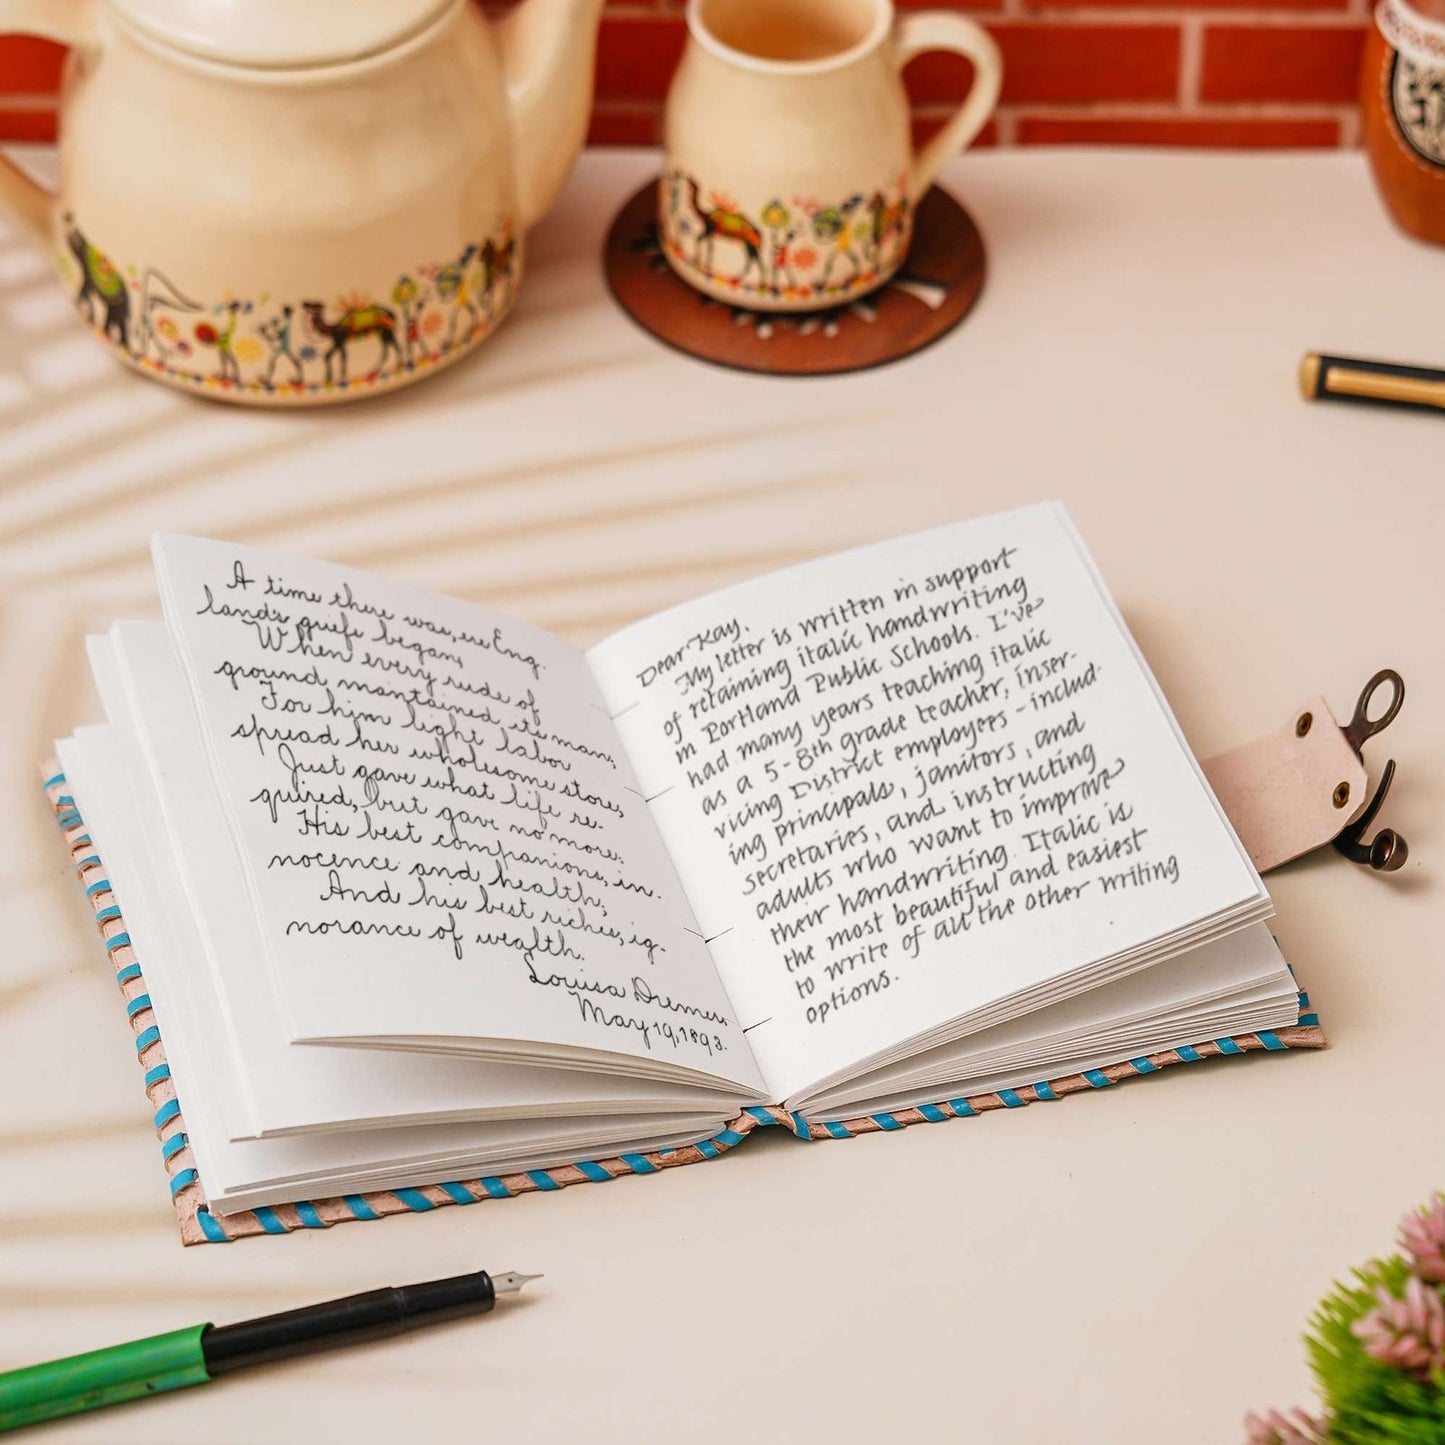 A time there was, ere Eng.
land's griefs began,
When every rude of
ground maintained its man;
For him light labor
spread her wholesome store,
Just gave what life re-
quired, but gave no more;
His best companions, in-
nocence and health;
And his best riches, ig-
norance of wealth.
Louisa Diemer.
May 19, 1893.
Dear Kay,
My letter is written in support
of retaining italic handwriting
in Portland Public Schools. I've
had many years teaching italic
as a 5-8th grade teacher, inser-
vicing District employees - includ-
ing principals, janitors, and
secretaries, and instructing
adults who want to improve
their handwriting. Italic is
the most beautiful and easiest
to write of all the other writing
options.